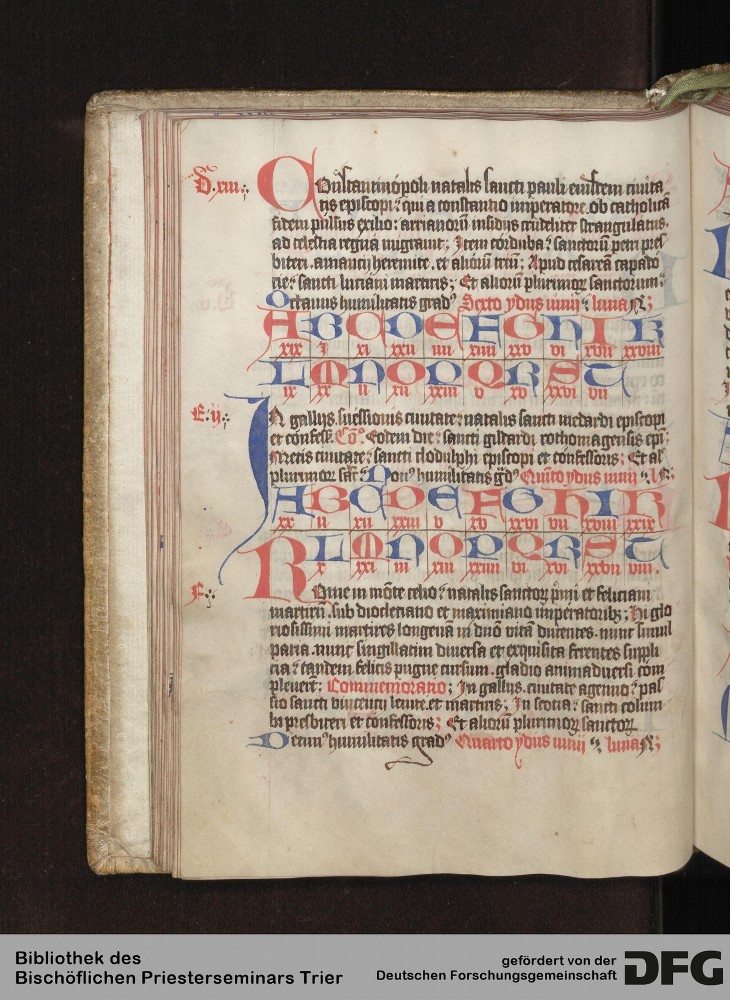 D. xiii.
Constantinopoli natalis sancti pauli eiusdem ciuita
tis episcopi: qui a constantio imperatore ob catholicā
fidem pulsus exilio: arrianorū insidijs crudeliter strangulatus.
ad celestia regna migrauit; Item corduba: sanctorū petri pres
biteri. amancij heremite. et aliorū triū; Apud cesareā capado
cie: sancti luciani martiris; Et aliorū plurimorꝝ sanctorum:
Octauus humilitatis gradꝰ Sexto ydus iunij luna
A B C D E F G H I K
xix J xi xxii iiii xiiii xxv vi xvii xxviii
L M N O P Q R S T
ix xx ii xii xxiii v xv xxvi vii
E. ij.
In gallijs. suessionis ciuitate: natalis sancti medardi episcopi
et confess. Eodem die: sancti gildardi. rothomagensis epi;
Metis ciuitate: sancti clodulphi episcopi et confessoris; Et al
plurimorꝝ Nonꝰ humilitatis gdꝰ Quinto ydus iunij
A B C D E F G H I K
xx ii xii xxiii v xv xxvi vii xviii xxix
L M N O P Q R S T
x xxi iii xiii xxiiii vi xvi xxvii viii.
F.
Rome in mōte celio: natalis sanctorꝝ primi et feliciani
martirū. sub diocletiano et maximiano imperatoribꝫ; Hi glo
riosissimi martires longeuā in dnō vitā ducentes. nunc simul
paria. nunc singillatim diuersa et exquisita ferentes suppli
cia: tandem felicis pugne cursum. gladio animaduersi com
pleuert; Commemoratio; In gallijs. ciuitate agenno: pas
sio sancti vincencij leuite. et martiris; In scotia: sancti colum
bi presbiteri et confessoris; Et aliorū plurimorꝝ sanctorꝝ
Decimꝰ humilitatis gradꝰ Quarto ydus iunij luna
Bibliothek des
Bischöflichen Priesterseminars Trier
gefördert von der
Deutschen Forschungsgemeinschaft
DFG